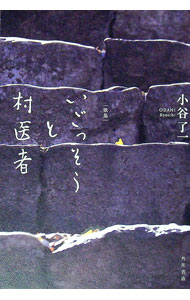 小谷了一
ODANI Ryoichi
[歌集]
いごっそう
と
村医者
角川書店